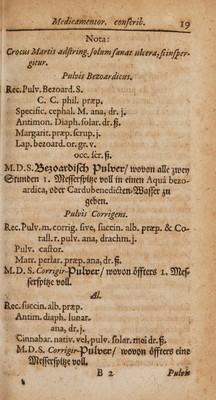 Medicamentor. conscrib. 19
Nota:
Crocus Martis adstring. solum sanat ulcera, si insper-
gitur.
Pulvis Bezoardicus.
Rec. Pulv. Bezoard. S.
C. C. phil. præp.
Specific. cephal. M. ana, dr. j.
Antimon. Diaph. solar. dr. ß.
Margarit. præp. scrup. j.
Lap. bezoard. or. gr. v.
occ. scr. ß.
M. D. S. Bezoardisch Pulver/ wovon alle zwey
Stunden 1. Messerspitze voll in einen Aquâ bezo-
ardica, oder Cardubenedicten-Wasser zu
geben.
Pulvis Corrigens.
Rec. Pulv. m. corrig. sive, succin. alb. præp. & Co-
rall. r. pulv. ana, drachm. j.
Pulv. castor.
Matr. perlar. præp. ana, dr. ß.
M. D. S. Corrigir-Pulver/ wovon öffters 1. Mes-
serspitze voll.
Al.
Rec. succin. alb. præp.
Antim. diaph. lunar.
ana, dr. j.
Cinnabar. nativ. vel, pulv. solar. mei dr. ß.
M. D. S. Corrigir-Pulver/ wovon öffters eine
Messerspitze voll.
B 2 Pulvis